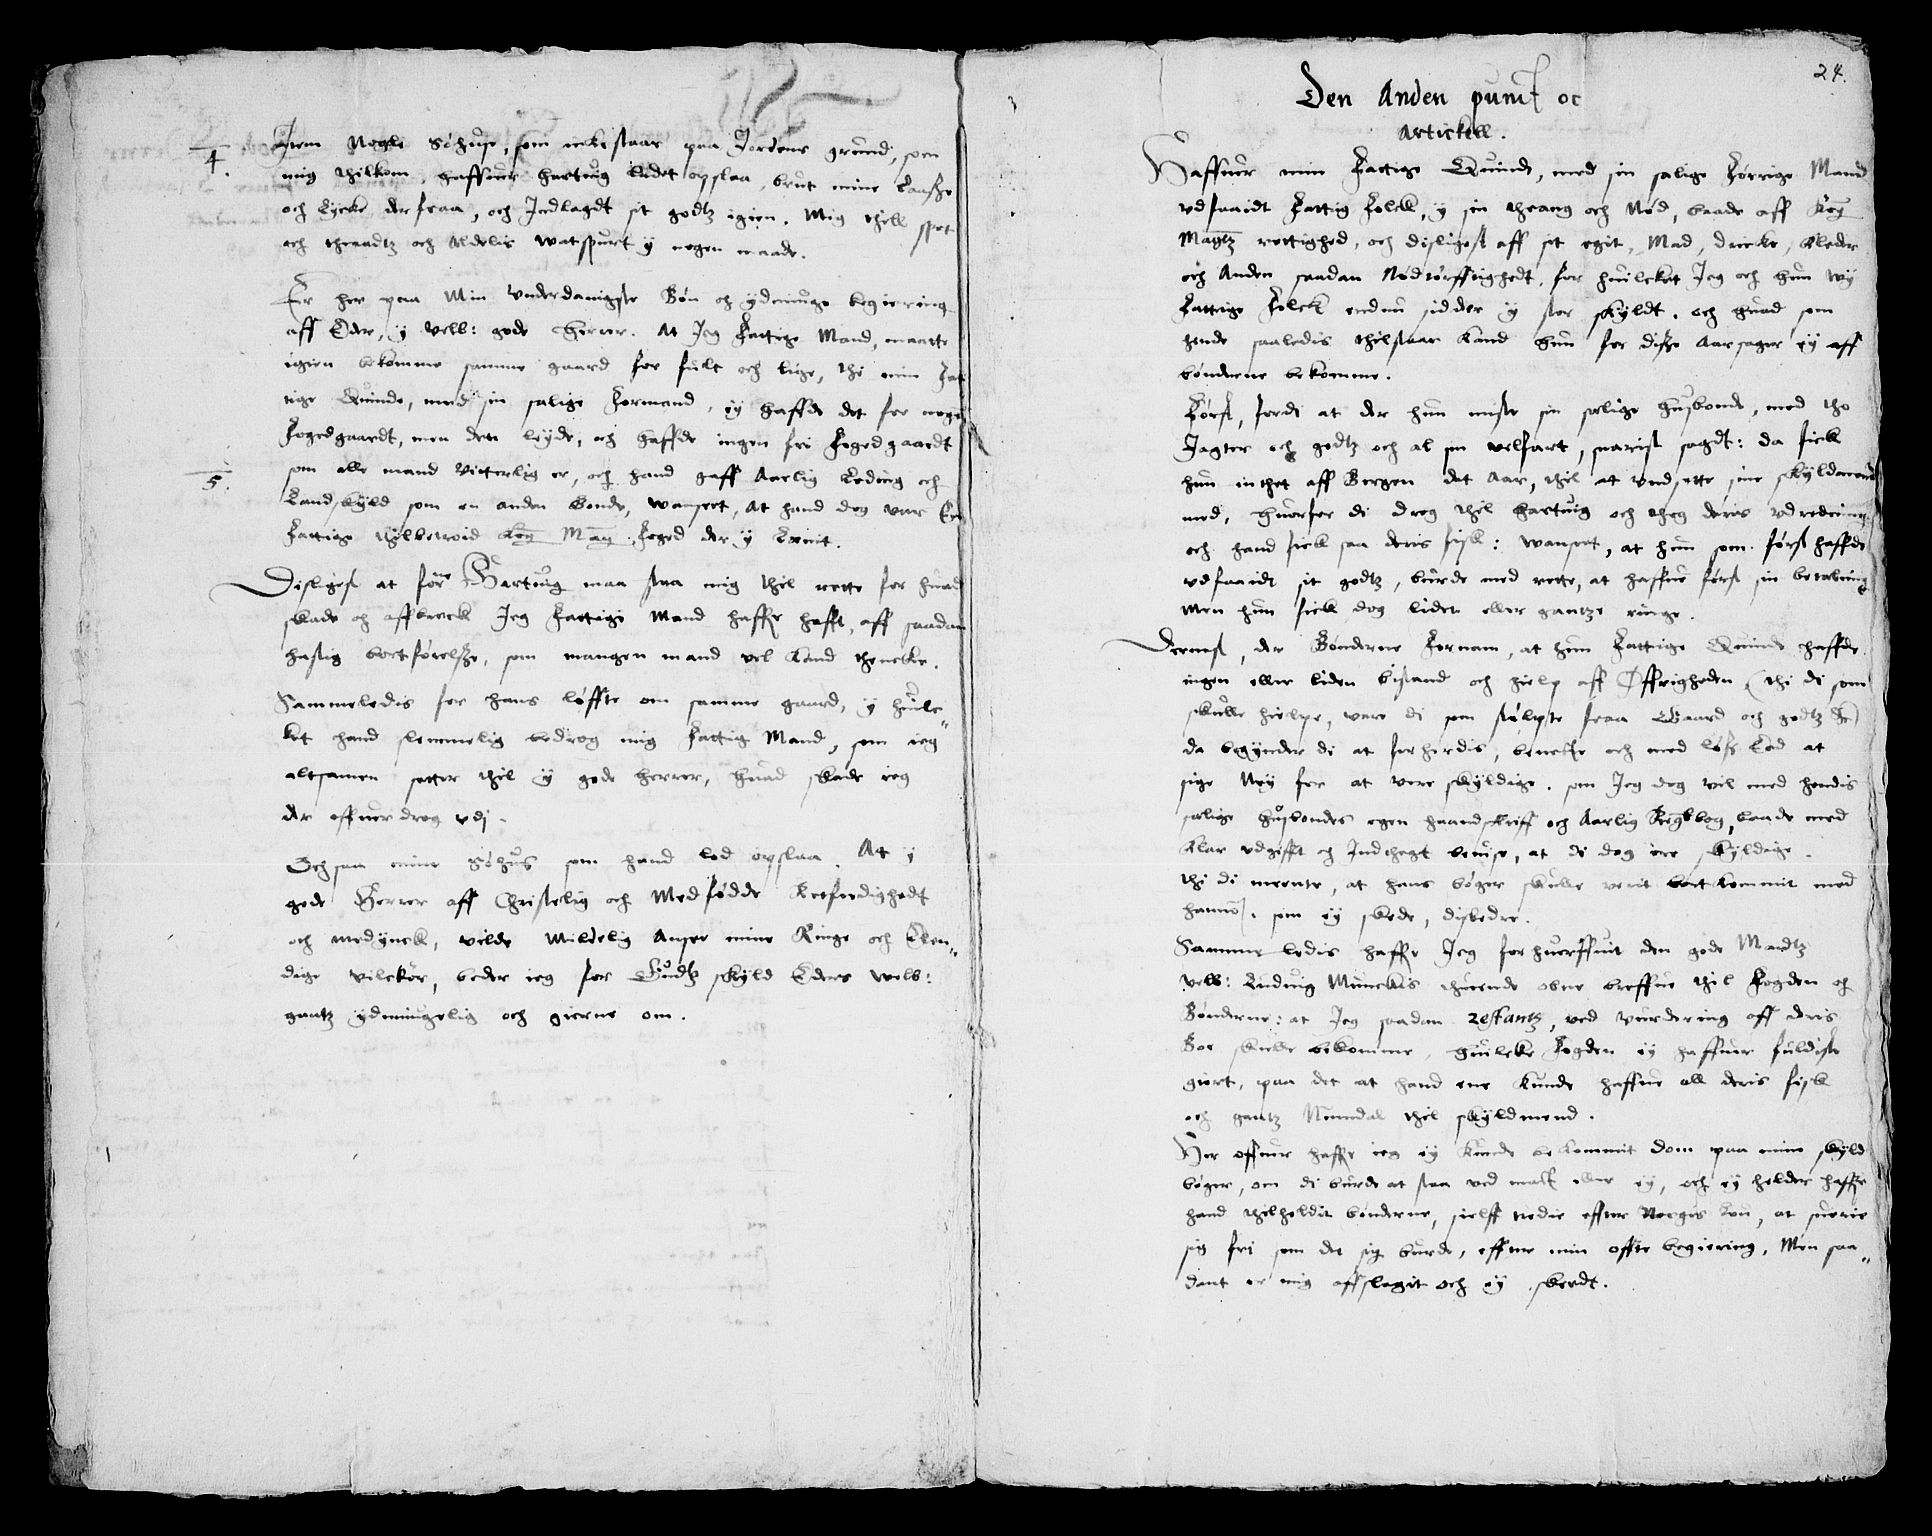 4. Item Nogle Søhuse, som icke staar paa Jordens grund, som
mig thilkom, haffuer Hartuig ladet opslaa, brut mine Laasße
och Lycke derfraa, och Indlagdt sit godtz igien. Mig thill spot
och thraadtz och Aldelis Watspurt y nogen maade.
Er her paa Min Vnderdanigste Bøn och ydmiuge begiering
aff Eder, y Velb: gode Herrer. At Jeg Fattige Mand, maatte
igien bekomme samme gaard for fult och lige, thi min Fat
tige Quinde, med sin salige Formand, iy haffde det for nogen
Fogedgaardt, men den leyde, och haffde ingen fri Fogedgaardt
5. som alle mand Vitterlig er, och hand gaff Aarlig Leding och
Landskyld som en anden bonde, Wanseet, At hand dog var En
Fattige thilbetroid Koy May. Foged der y Leenit.
Disligest at for Hartuig maa staa mig thil rette for huad
skade och affbreck Jeg Fattige Mand haffr hafft, aff saadan
hastig bortførelsße, som mangen mand vel kand thencke.
Sammeledis for hans løffte om samme gaard, y huilc"
ket hand slemmelig bedrog mig Fattig Mand, som ieg
altsamen setter thil iy gode herrer, huad skade ieg
der offuer drog vdj.
Och saa mine Søhus som hand lod opslaa. At y
gode Herrer aff Christelig och Medfødde Retferdighedt
och medynck, vilde Mildelig Ansee mine Ringe och Elen"
dige vilckor, beder ieg for Gudtz skyld Eders Welb:
gantz ydmiugelig och gierne om.
24.
Den Anden punct oc
Artickell.
Haffuer min Fattige Quinde, med sin salige Førrige Mand
vdsaaidt Fattig Folck, y sin thrang och Nød, baade aff Koy
Maytz rettighed, och disligest aff sit egit, Mad, dricke, kleder
och Anden saadan Nødtørfftighedt, for huilcket Jeg och hun wy
Fattige Folck endnu sidder y stor skyldt, och huad som
hende saaledis thilstaar kand hun for disße Aarsager iy aff
bønderne bekomme.
Først, fordi at der hun miste sin salige husbonde, med tho
Jagter och godtz och al sin velfart, snarist sagdt: da fick
hun inthet aff Bergen det Aar, thil at vndsette sine skyldmend
med, huorfor di drog thil Hartuig och thog deris vdredning
och hand fick saa deris fisk: Wanseet, at hun som først haffde
vdsaaidt sit godtz, burde med rette, at haffue først sin betaling
Men hun fick dog lidet eller gantze ringe.
Dernest, der Bønderne Fornam, at hun Fattige Quinde haffde
ingen eller liden bistand och hielp aff Øffrigheden (thi di som
skulle hielpe, vare di som stølpte fraa Gaard och godtz)
da begynder di at forherdis, benecte och med løss Eed at
sige Ney for at vere skyldige, som Jeg dog vil med hendis
salige husbondes egen haandskrifft och Aarlig Regbog, baade med
klar vdgifft och Indthegt beuise, at di dog ere skyldige.
thi di meente, at hans bøger skulle verit bortkommit med
hannom, som iy skede, disbedre.
Sammeledis haffr Jeg forhuerffuit den gode Mandtz
velb: Ludvig Munckis thuende obne breffue thil Fogden och
Bønderne: at Jeg saadan restantz, ved vurdering aff deris
Boe skulle bekomme, huilcke Fogden iy haffuer fuldist
giort, paa det at hand ene kunde haffue all deris fisk
och gantz Numdal thil skyldmend.
Her offuer haffr ieg iy kunde bekommit dom paa mine skyld
bøger, om di burde at staa ved mact eller iy, och iy helder haffr
hand thilholdit bønderne, sielff tredie effter Norgis Lou, at suerie
sig fri som det sig burde, effter min offte begiering, Men saa"
dant er mig affslagit och iy skeedt.